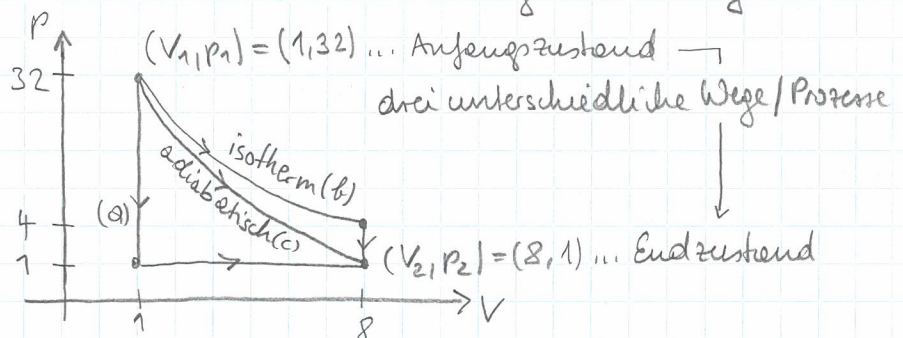 P
(V₁, p₁) = (1,32) ... Anfangszustand
32
drei unterschiedliche Wege/Prozesse
isotherm (b)
adiabatisch (c)
(a)
4
1
(V₂, p₂) = (8,1) ... Endzustand
V
1
8